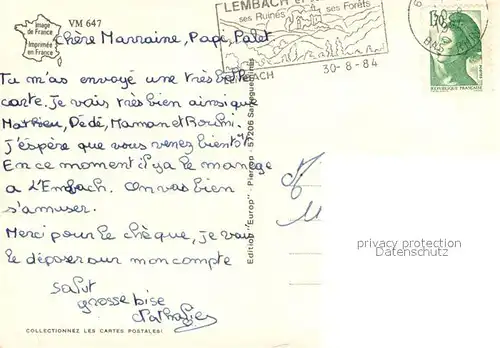 Image
de France
Imprimée
en France
VM 647
LEMBACH
ses Ruines ses Forêts
30-8-84
1,70
RÉPUBLIQUE FRANÇAISE
Chère Marraine, Papi, Palet
Tu m'as envoyé une très belle
carte. Je vais très bien ainsi que
Mathieu, Dédé, Maman et
J'éspère que vous venez bientôt
En ce moment il y a le manège
a L'Embach. On va bien
s'amuser.
Merci pour le chèque, je vais
le déposer sur mon compte
salut
grosse bise
Nathalie
Edition "Europ" - Pierron - 57206 Sarreguemines
privacy protection
Datenschutz
COLLECTIONNEZ LES CARTES POSTALES!